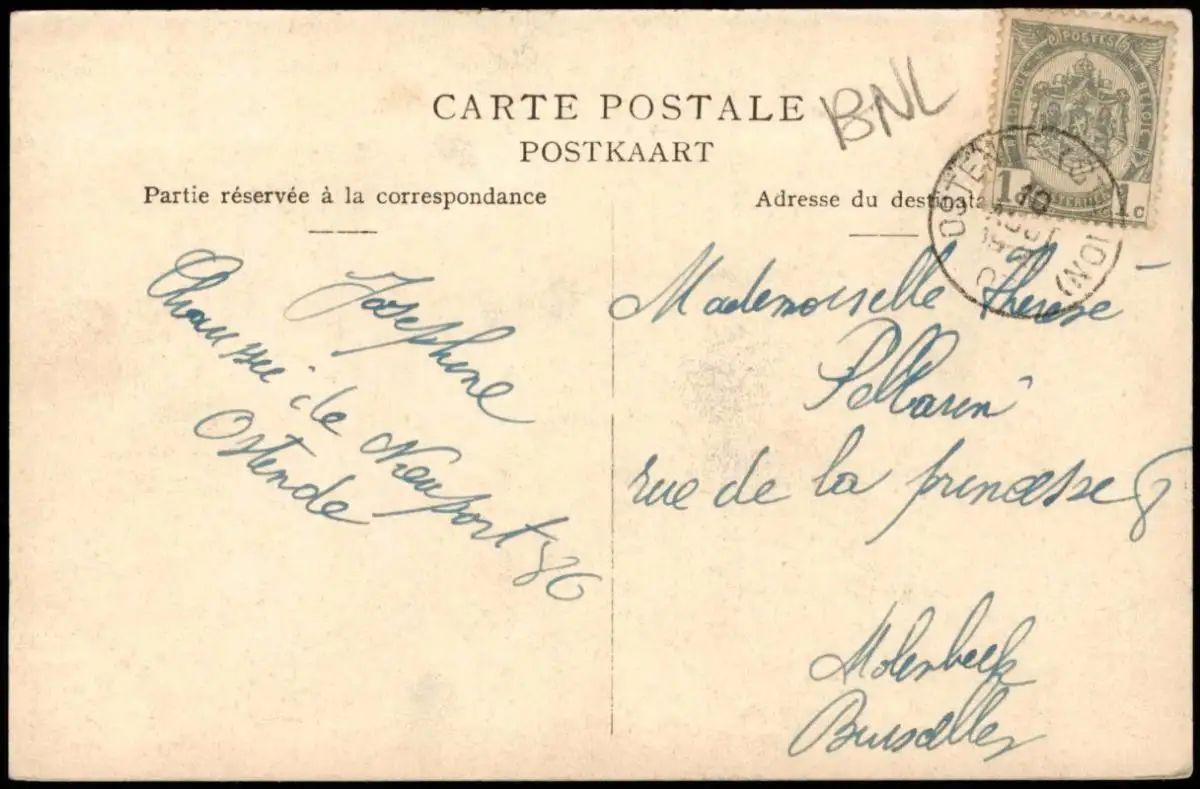 CARTE POSTALE
POSTKAART
BNL
POSTES
BELGIQUE BELGIË
1 1c
10
AOUT
Partie réservée à la correspondance
Josephine
Chaussée de Nieuport 86
Ostende
Adresse du destinata
Mademoiselle Therese
Pellarin
rue de la princesse 8
Molenbeek
Bruxelles